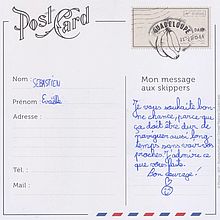 Post Card
GUADELOUPE
Nom : SEBASTIEN
Prénom : Evaëlle
Adresse :
Tel :
Mail :
Mon message
aux skippers
Je vous souhaite bon-
ne chance, parce que
ça doit être dur de
naviguer aussi long-
temps sans voir vos
proches. J'admire ce
que vous faites.
Bon courage !